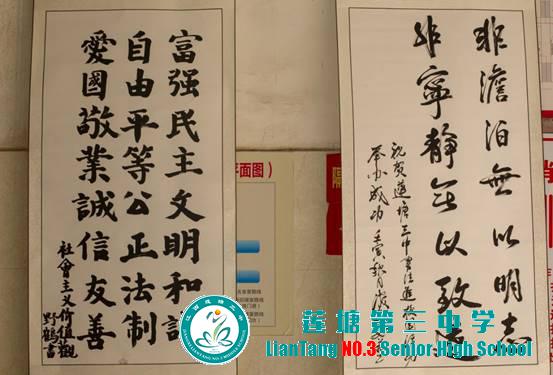 富强民主文明和諧
自由平等公正法制
愛國敬業誠信友善
社會主义價值觀
野鶴書
非澹泊無以明志
非寧静無以致遠
祝贺蓮塘三中書法進校園活动
举办成功
平面图）
莲塘第三中学
LianTang NO.3 Senior High School